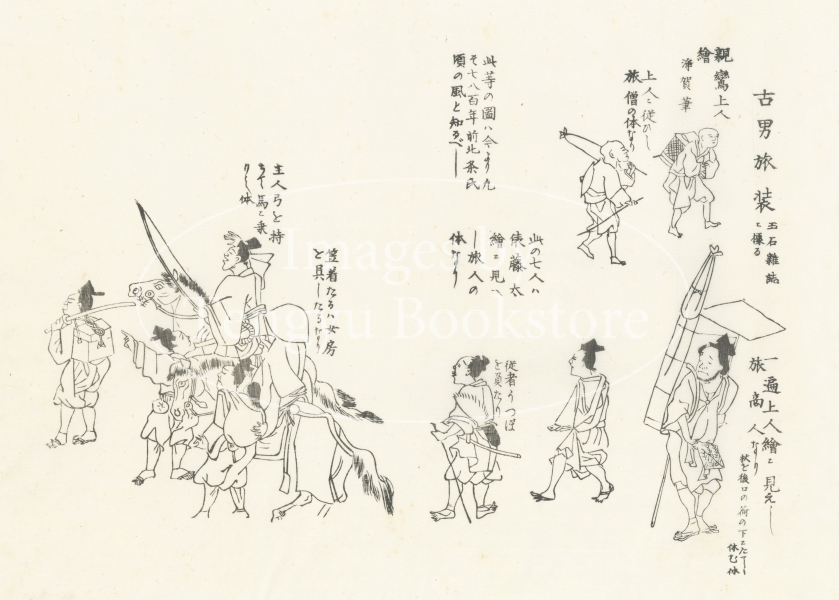 古男旅装
玉石雑誌
ニ據る
親鸞上人
繪
浄賀筆
上人ニ従ひし
旅僧の体なり
此等の圖ハ今より凡
そ七八百年前北条氏
頃の風と知るべし
一遍上人繪ニ見えし
旅商人なり
杖を後口の荷の下ニたてゝ
休む体
此の七人ハ
俵藤太
繪ニ見へ
し旅人の
体なり
従者うつぼ
を負たり
主人弓を持
て馬ニ乗
りし体
笠着たるハ女房
を具したるなり
Images by
Bookstore